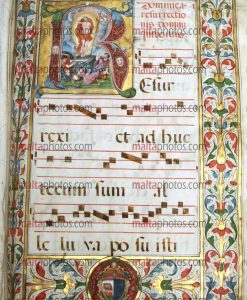 Dominica
resurrectio
nis domini
R
esur
rexi et ad huc
tecum sum al
le lu ya po su isti
maltaphotos.com
maltaphotos.com
maltaphotos.com
maltaphotos.com
maltaphotos.com